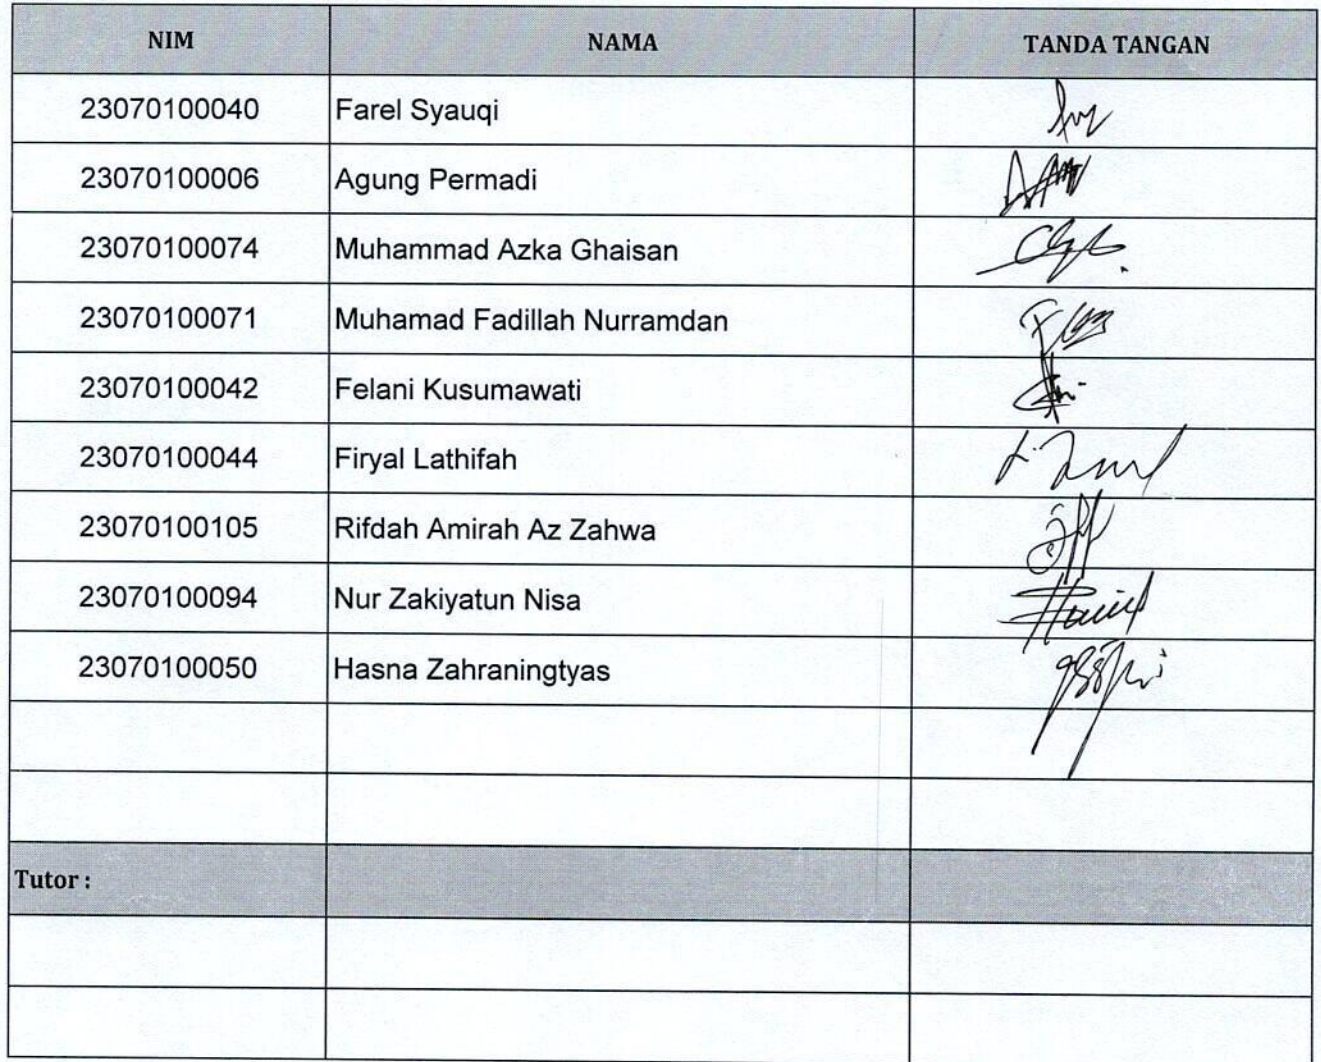 NIM NAMA TANDA TANGAN
23070100040 Farel Syauqi
23070100006 Agung Permadi
23070100074 Muhammad Azka Ghaisan
23070100071 Muhamad Fadillah Nurramdan
23070100042 Felani Kusumawati
23070100044 Firyal Lathifah
23070100105 Rifdah Amirah Az Zahwa
23070100094 Nur Zakiyatun Nisa
23070100050 Hasna Zahraningtyas
Tutor :